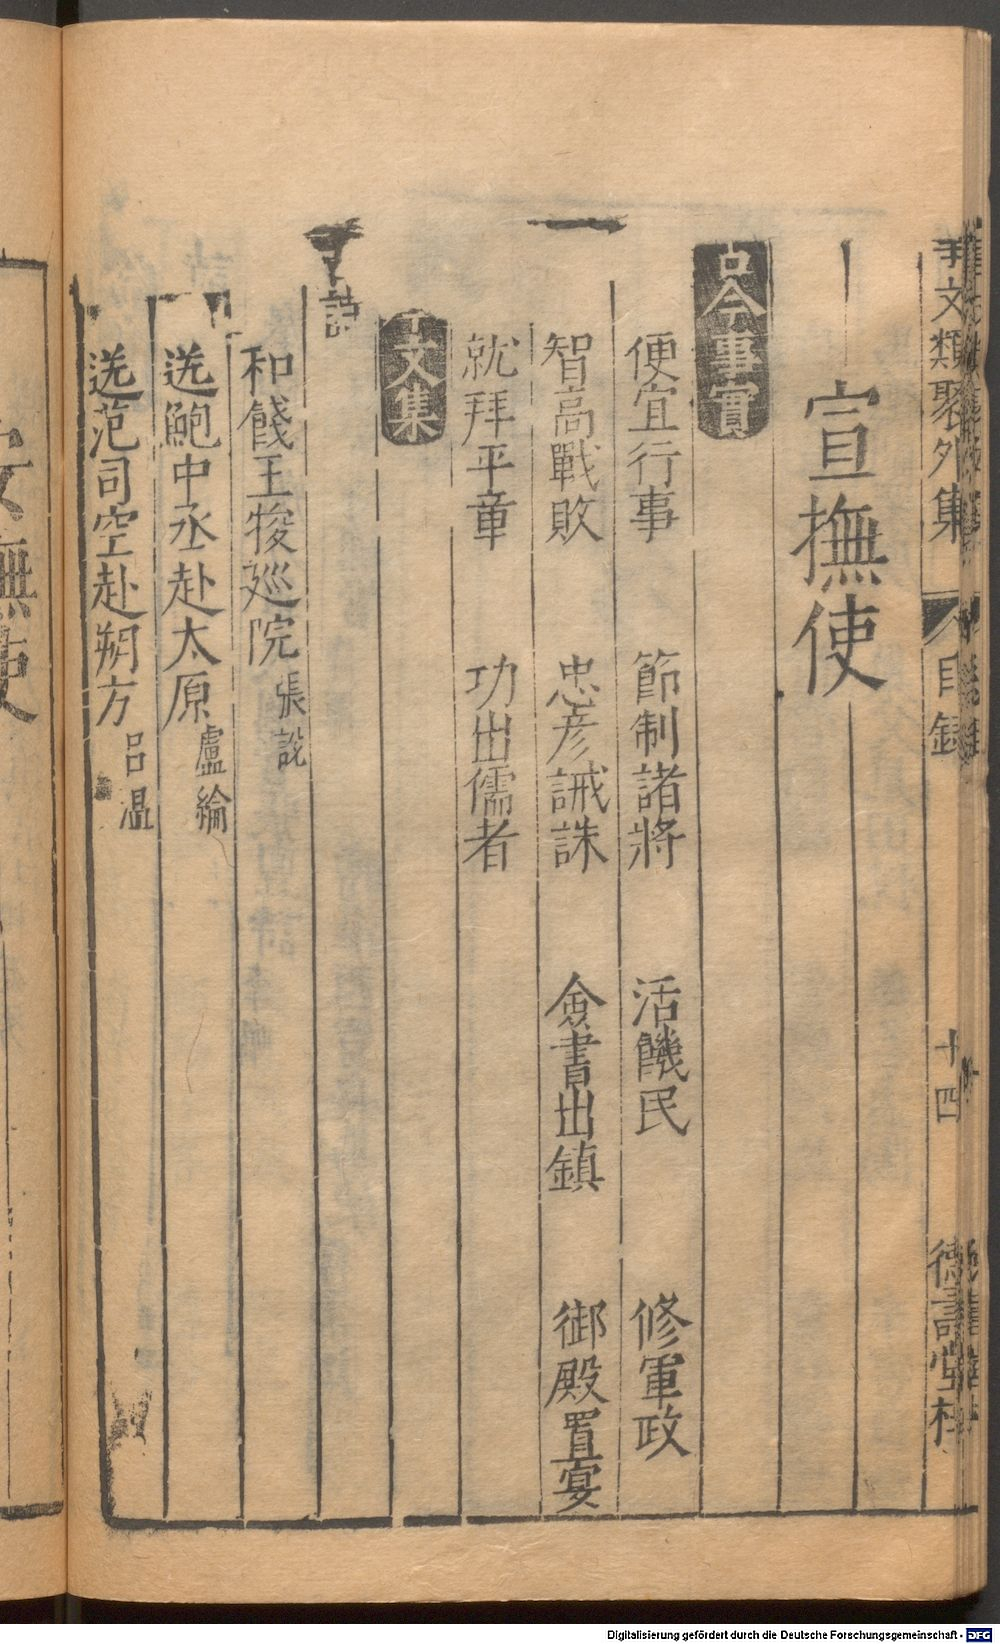 事文類聚外集 目錄 十四 德壽堂梓
宣撫使
古今事實
便宜行事 節制諸將 活饑民 修軍政
智高戰敗 忠彥誡誅 僉書出鎮 御殿置宴
就拜平章 功出儒者
古今文集
詩
和餞王晙廵院 張說
送鮑中丞赴太原 盧綸
送范司空赴朔方 呂温
安撫使
Digitalisierung gefördert durch die Deutsche Forschungsgemeinschaft - DFG